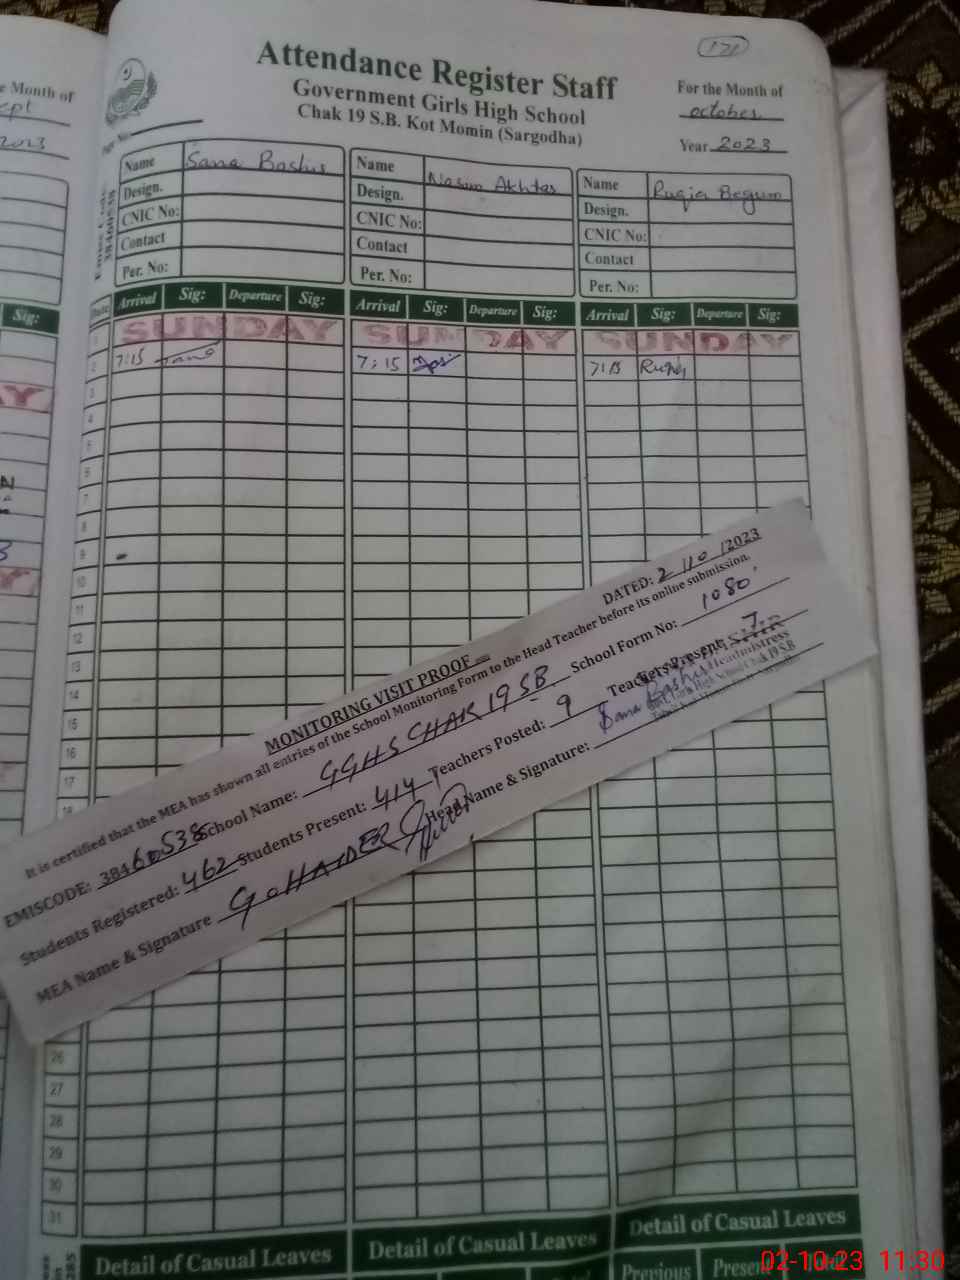 171
Attendance Register Staff
Government Girls High School
Chak 19 S.B. Kot Momin (Sargodha)
For the Month of
october
Year 2023
e Month of
ept
2023
38460538
Name Sana Bashir
Design.
CNIC No:
Contact
Per. No:
Name Nasim Akhtar
Design.
CNIC No:
Contact
Per. No:
Name Ruqia Begum
Design.
CNIC No:
Contact
Per. No:
Sig:
Arrival Sig: Departure Sig: Arrival Sig: Departure Sig: Arrival Sig: Departure Sig:
1 SUNDAY SUNDAY SUNDAY
2 7:15 7:15 7:15
3
4
5
6
7
8
9
10
11
12
13
14
15
16
17
18
MONITORING VISIT PROOF
DATED: 2/10/2023
It is certified that the MEA has shown all entries of the School Monitoring Form to the Head Teacher before its online submission.
EMISCODE: 38460538 School Name: GGHS CHAK 19 SB School Form No: 1080
Students Registered: 462 Students Present: 414 Teachers Posted: 9 Teachers Present: 7
MEA Name & Signature G. HAIDER Head Name & Signature: Sana Bashir
Headmistress
Govt. Girls High School Chak 19 S.B
26
27
28
29
30
31
Detail of Casual Leaves Detail of Casual Leaves Detail of Casual Leaves
Previous Present
02-10-23 11:30